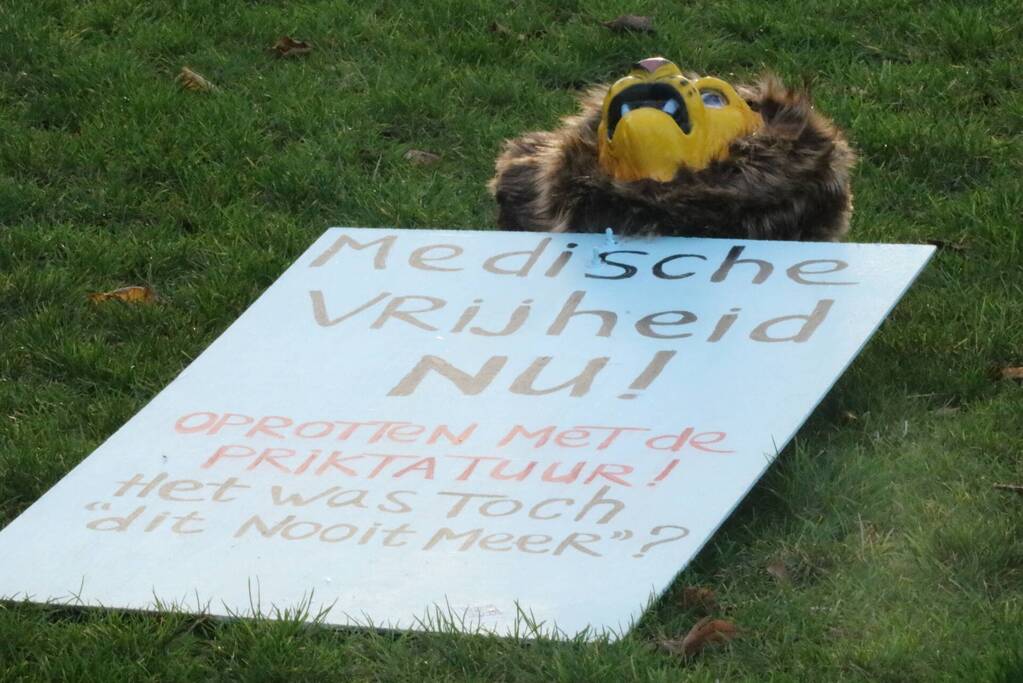 Medische
VRijheid
NU!
OPROTTEN MET de
PRiKTATUUR!
Het was Toch
"dit Nooit MeeR"?